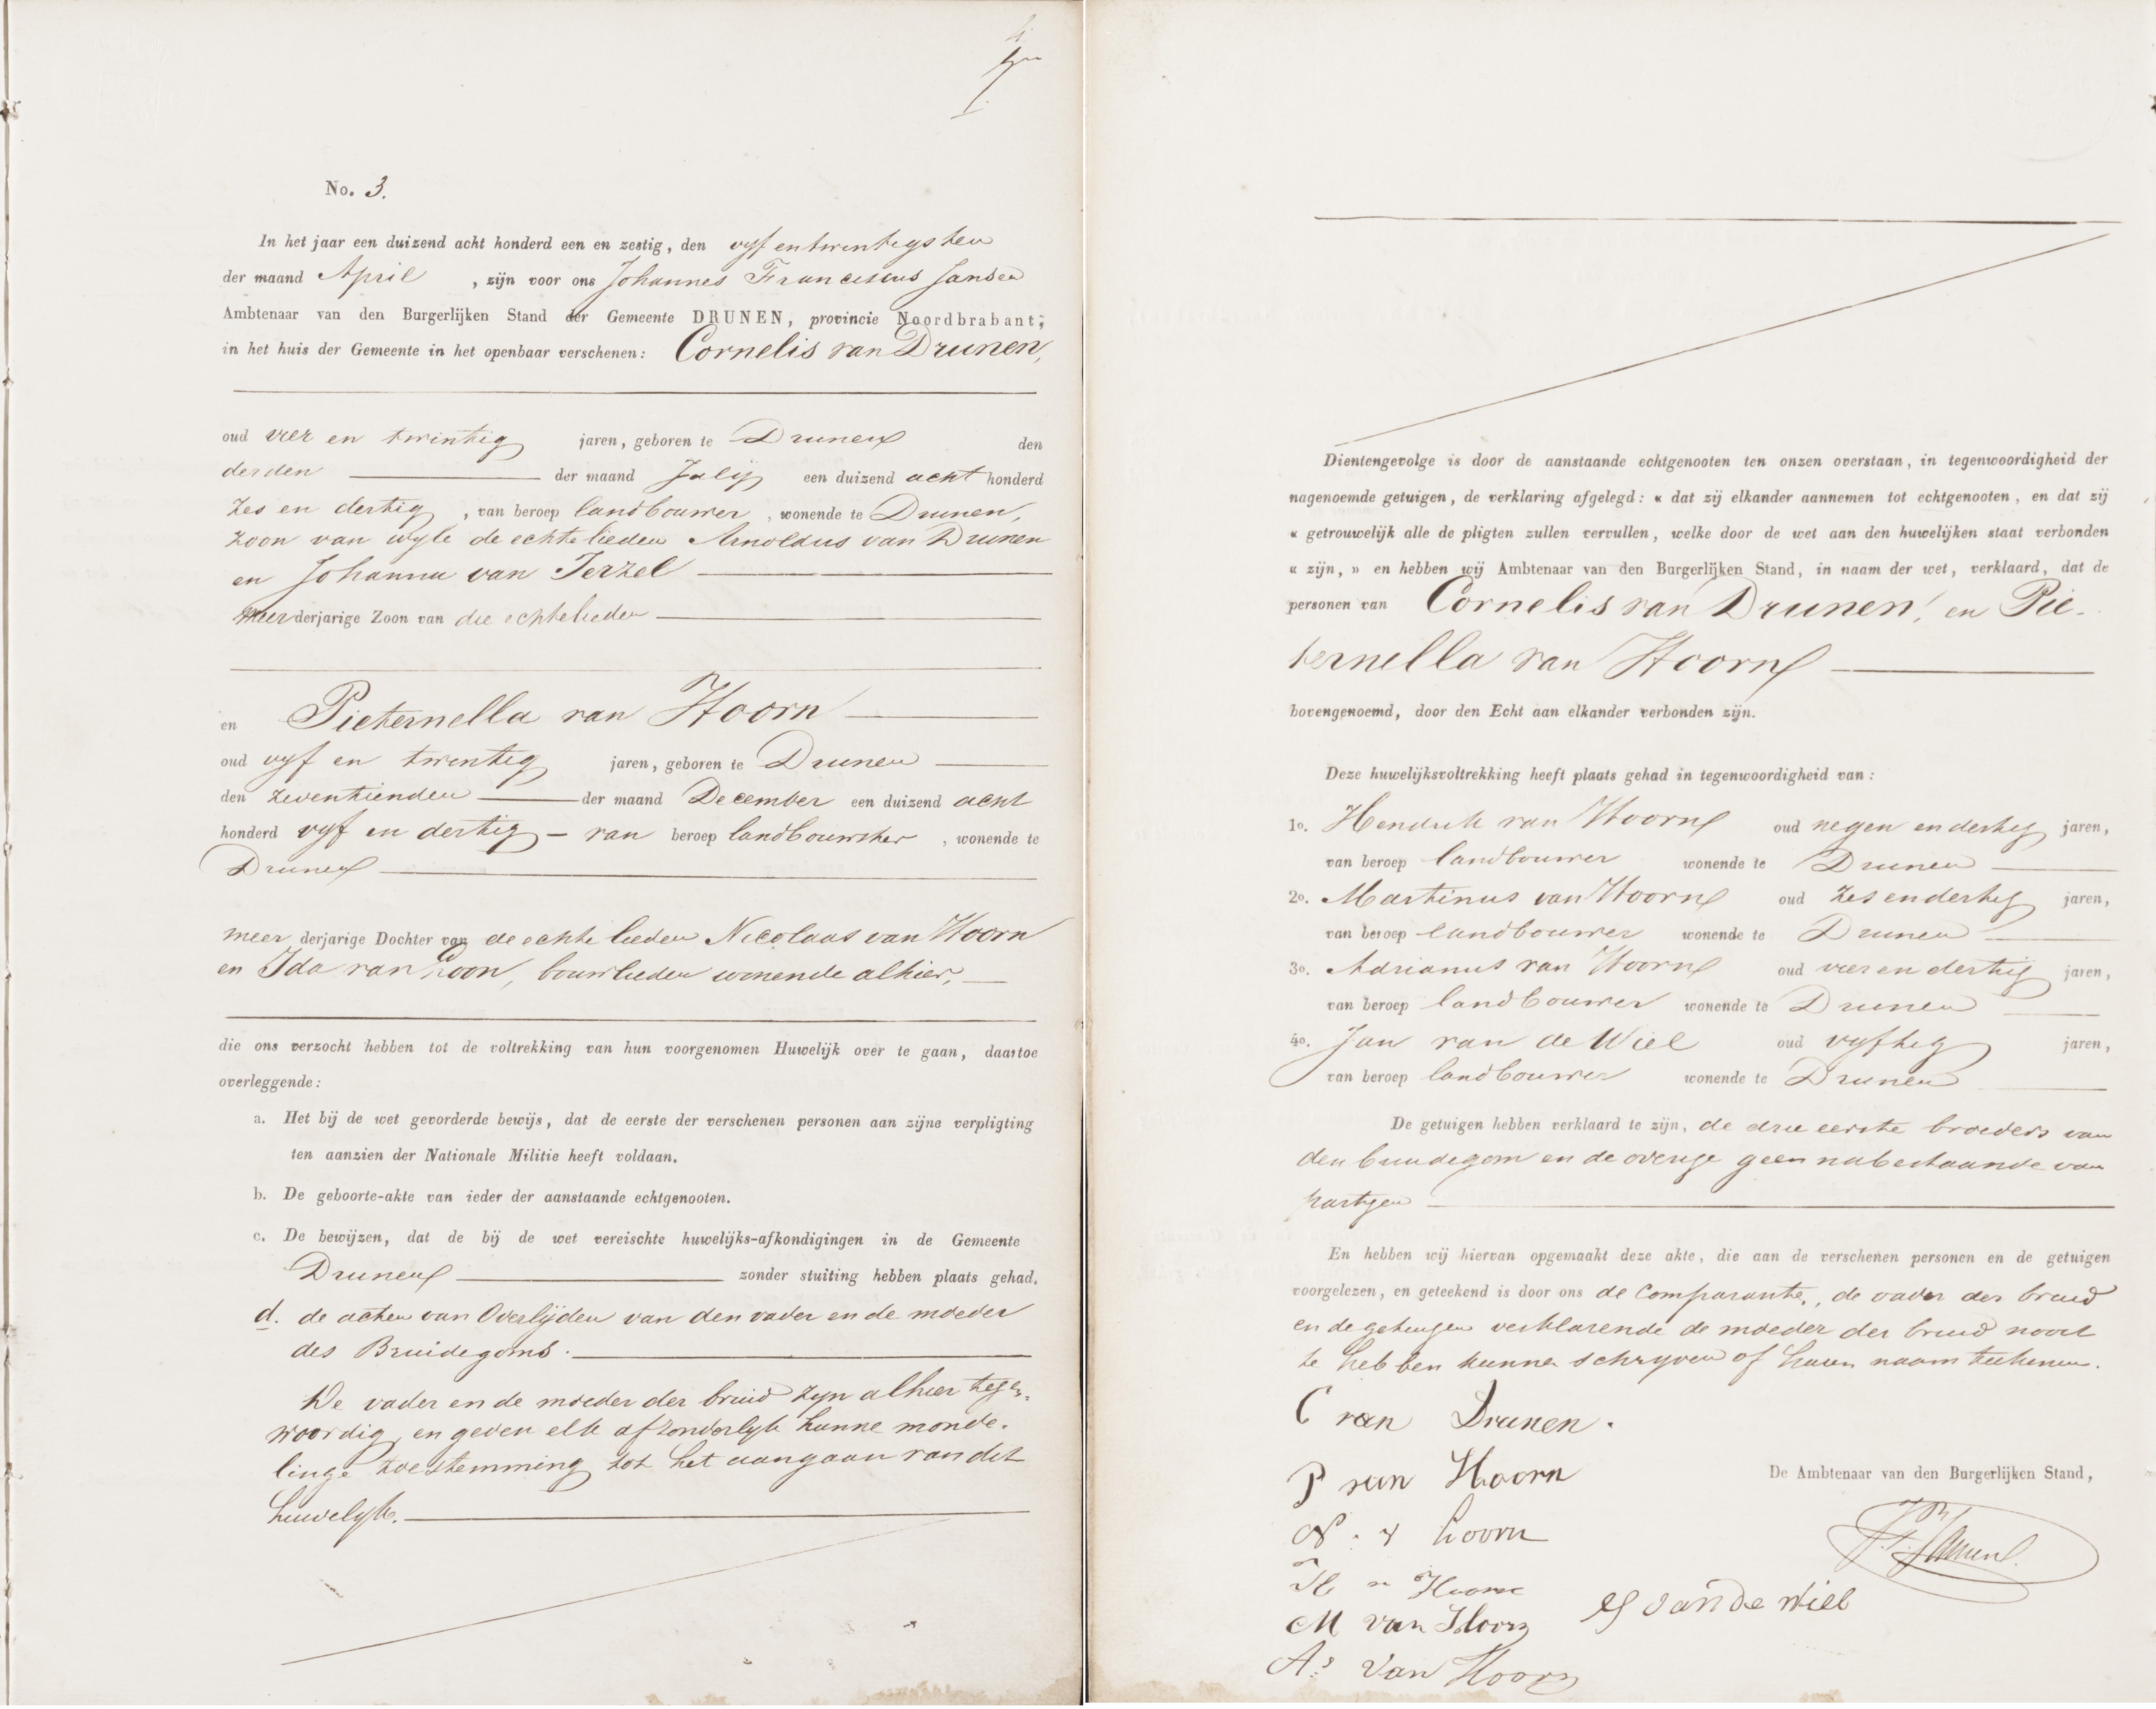 No. 3.
In het jaar een duizend acht honderd een en zestig, den vyf entwintigsten
der maand April , zijn voor ons Johannes Franciscus Jansen
Ambtenaar van den Burgerlijken Stand der Gemeente DRUNEN, provincie Noordbrabant;
in het huis der Gemeente in het openbaar verschenen: Cornelis van Drunen,
oud vier en twintig jaren, geboren te Drunen den
derden der maand Julij een duizend acht honderd
zes en dertig , van beroep landbouwer , wonende te Drunen,
zoon van wyle de echtelieden Arnoldus van Drunen
en Johanna van Terzel
meerderjarige Zoon van die echtelieden
en Pieternella van Hoorn
oud vyf en twintig jaren, geboren te Drunen
den zeventienden der maand December een duizend acht
honderd vyf en dertig - van beroep landbouwster , wonende te
Drunen
meer derjarige Dochter van de echte lieden Nicolaas van Hoorn
en Ida van Loon, bouwlieden wonende alhier,
die ons verzocht hebben tot de voltrekking van hun voorgenomen Huwelijk over te gaan, daartoe
overleggende:
a. Het bij de wet gevorderde bewijs, dat de eerste der verschenen personen aan zijne verpligting
ten aanzien der Nationale Militie heeft voldaan.
b. De geboorte-akte van ieder der aanstaande echtgenooten.
c. De bewijzen, dat de bij de wet vereischte huwelijks-afkondigingen in de Gemeente
Drunen zonder stuiting hebben plaats gehad.
d. de acten van Overlyden van den vader en de moeder
des Bruidegoms.
De vader en de moeder der bruid zyn alhier tegen-
woordig, en geven elk afzonderlyk hunne monde-
linge toestemming tot het aangaan van dit
huwelyk.
Dientengevolge is door de aanstaande echtgenooten ten onzen overstaan, in tegenwoordigheid der
nagenoemde getuigen, de verklaring afgelegd: « dat zij elkander aannemen tot echtgenooten, en dat zij
« getrouwelijk alle de pligten zullen vervullen, welke door de wet aan den huwelijken staat verbonden
« zijn, » en hebben wij Ambtenaar van den Burgerlijken Stand, in naam der wet, verklaard, dat de
personen van Cornelis van Drunen, en Pie-
ternella van Hoorn
bovengenoemd, door den Echt aan elkander verbonden zijn.
Deze huwelijksvoltrekking heeft plaats gehad in tegenwoordigheid van:
1o. Hendrik van Hoorn oud negen en dertig jaren,
van beroep landbouwer wonende te Drunen
2o. Martinus van Hoorn oud zes en dertig jaren,
van beroep landbouwer wonende te Drunen
3o. Adrianus van Hoorn oud vier en dertig jaren,
van beroep landbouwer wonende te Drunen
4o. Jan van de Wiel oud vyftig jaren,
van beroep landbouwer wonende te Drunen
De getuigen hebben verklaard te zijn, de drie eerste broeders van
den bruidegom en de overige geen nabestaande van
partyen
En hebben wij hiervan opgemaakt deze akte, die aan de verschenen personen en de getuigen
voorgelezen, en geteekend is door ons de Comparante, de vader der bruid
en de getuigen verklarende de moeder der bruid nooit
te hebben kunnen schryven of haren naam teekenen.
C van Drunen.
P van Hoorn
De Ambtenaar van den Burgerlijken Stand,
N. v hoorn
J.F. Jansen
H v Hoorn
M van Hoorn
van de Wiel
As van Hoorn